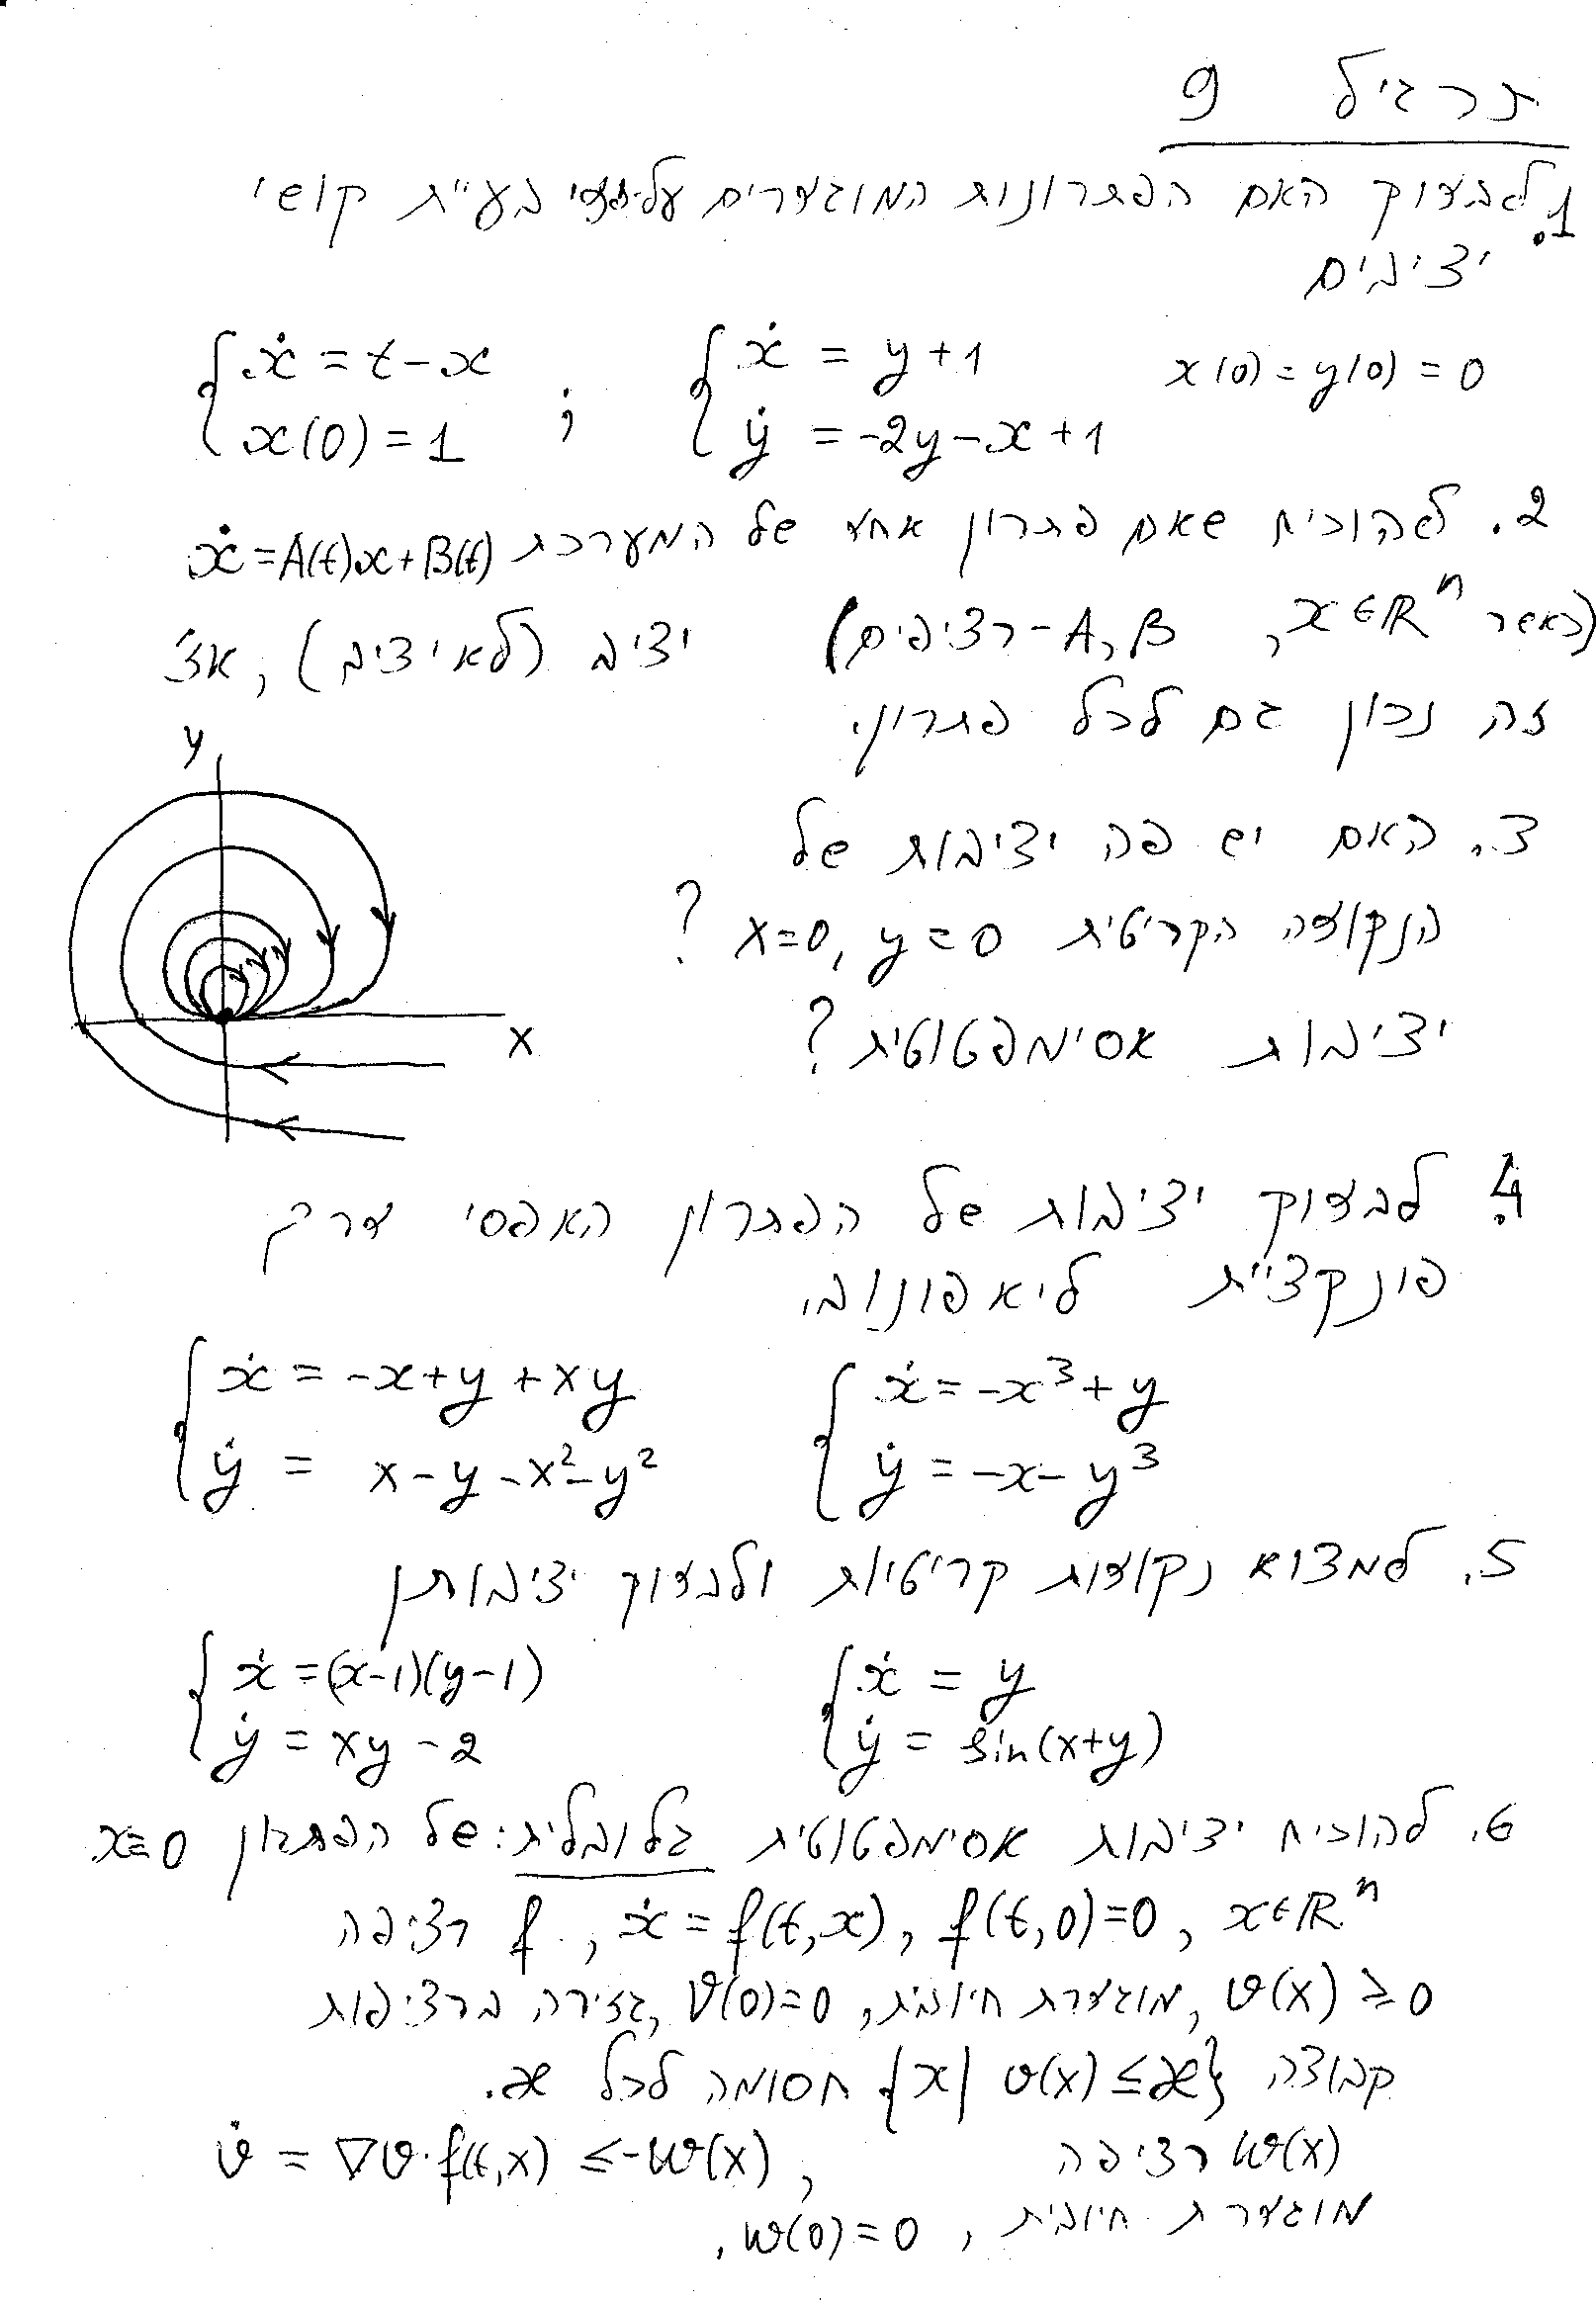 תרגיל 9
1. לבדוק האם הפתרונות המוגדרים על-ידי בע"ת קושי
יציבים
{ ẋ = t - x ; { ẋ = y + 1 x(0) = y(0) = 0
x(0) = 1 ẏ = -2y - x + 1
2. להוכיח שאם פתרון אחד של המערכת ẋ = A(t)x + B(t)
(כאשר x ∈ ℝⁿ, A, B - רציפים) יציב (לא יציב), אז
זה נכון גם לכל פתרון.
3. האם יש פה יציבות של
הנקודה הקריטית x=0, y=0 ?
יציבות אסימפטוטית?
y
x
4. לבדוק יציבות של הפתרון האפסי דרך
פונקצי"ת ליאפונוב.
{ ẋ = -x + y + xy { ẋ = -x³ + y
ẏ = x - y - x² - y² ẏ = -x - y³
5. למצוא נקודות קריטיות ולבדוק יציבותן
{ ẋ = (x-1)(y-1) { ẋ = y
ẏ = xy - 2 ẏ = sin(x+y)
6. להוכיח יציבות אסימפטוטית גלובלית: של הפתרון x≡0
ẋ = f(t,x), f(t,0)=0, x∈ℝⁿ, f רציפה
v(x) ≥ 0, מוגדרת חיובית, v(0)=0, גזירה ברציפות
קבוצה {x| v(x) ≤ æ} חסומה לכל æ.
v̇ = ∇v·f(t,x) ≤ -w(x), w(x) רציפה
מוגדרת חיובית, w(0)=0.